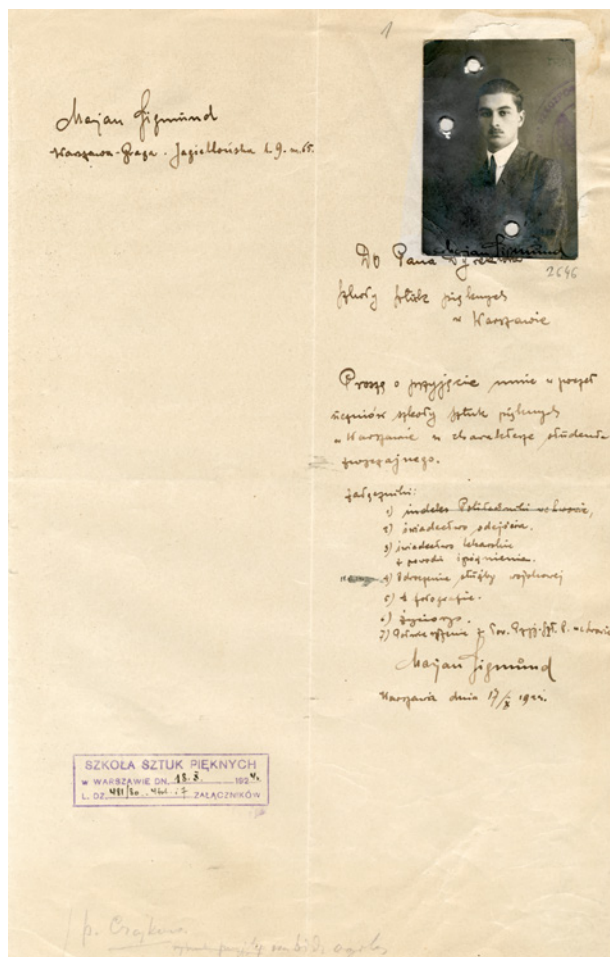 1
Marjan Sigmund
Warszawa-Praga. Jagiellońska L. 9. m. 65.
Marjan Sigmund
2646
Do Pana Dyrektora
Szkoły Sztuk pięknych
w Warszawie
Proszę o przyjęcie mnie w poczet
uczniów szkoły sztuk pięknych
w Warszawie w charakterze studenta
zwyczajnego.
Załączniki:
1) indeks Politechniki
2) świadectwo odejścia.
3) świadectwo lekarskie
z powodu spóźnienia.
4) Odroczenie służby wojskowej
5) 4 fotografie.
6) życiorys.
7)
Marjan Sigmund
Warszawa dnia 17/X
SZKOŁA SZTUK PIĘKNYCH
W WARSZAWIE DN. 18.X. 1924.
L. DZ. ZAŁĄCZNIKÓW
p.